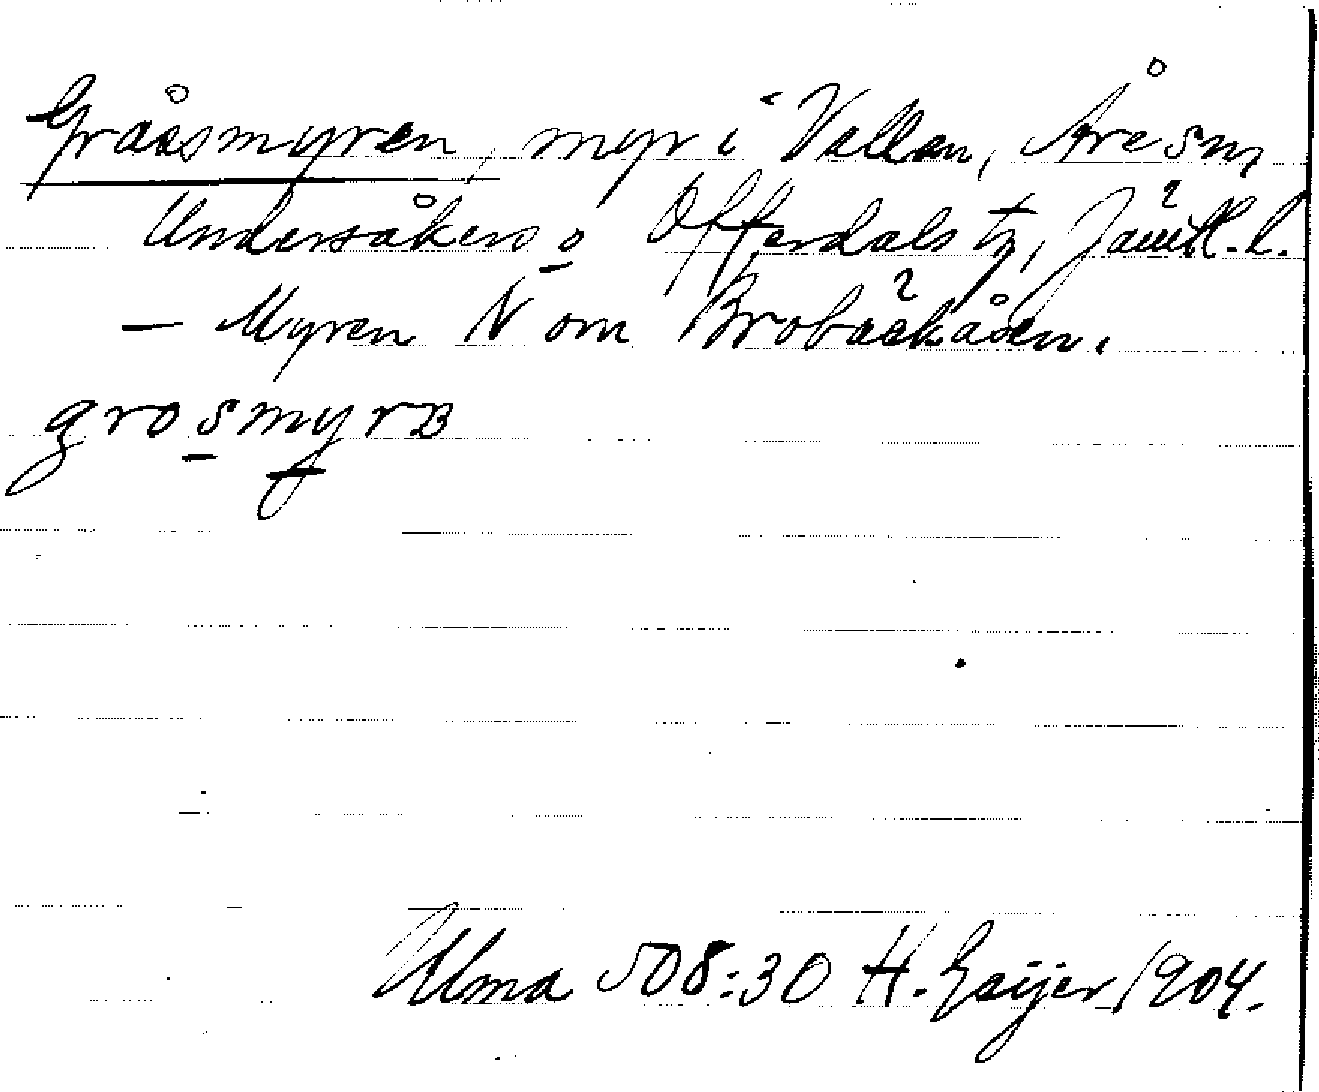 Grååsmyren, myr i Vallan, Åre sn,
Undersåkers o Offerdals tg, Jämtl. l.
— Myren N om Brobäckåsen.
grosmyrв
Ulma 508:30 H. Geijer 1904.